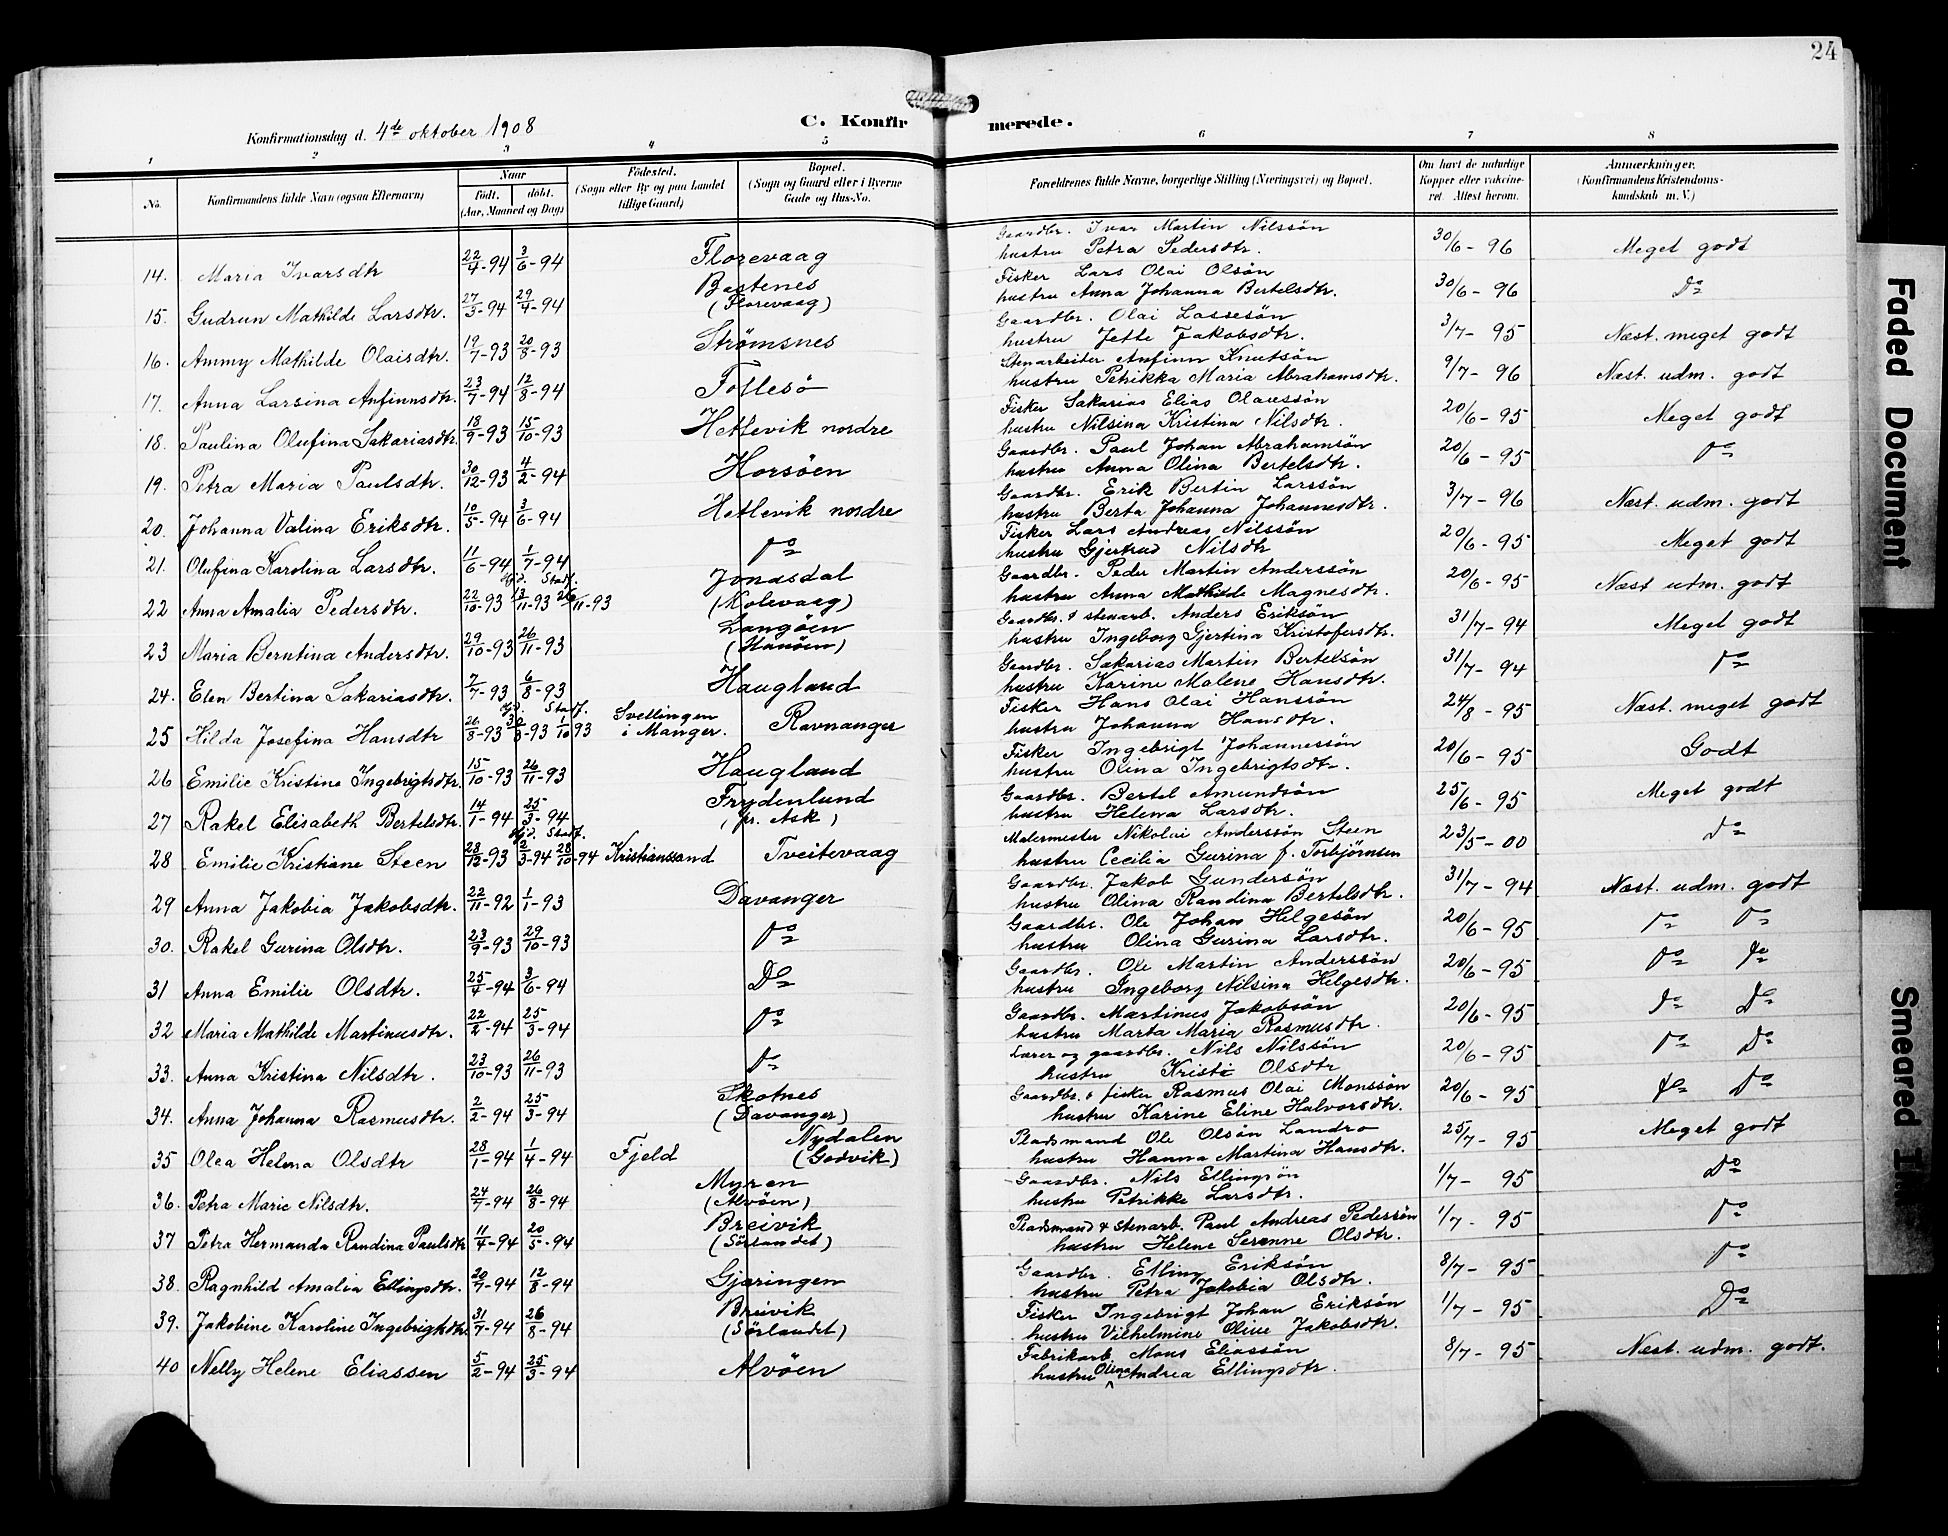 24
C. Konfirmerede.
Konfirmationsdag d. 4de oktober 1908
1 2 3 4 5 6 7 8
No.
Konfirmandens fulde Navn (ogsaa Efternavn)
Naar
født. døbt.
(Aar, Maaned og Dag)
Fødested.
(Sogn eller By og paa Landet
tillige Gaard)
Bopæl.
(Sogn og Gaard eller i Byerne
Gade og Hus-No.
Forældrenes fulde Navne, borgerlige Stilling (Næringsvei) og Bopæl.
Om havt de naturlige
Kopper eller vakcine-
ret. Attest herom.
Anmærkninger.
(Konfirmandens Kristendoms-
kundskab m. V.)
14. Maria Ivarsdtr 22/4-94 3/6-94 Florevaag Gaardbr. Ivar Martin Nilssön 30/6-96 Meget godt
hustru Petra Pedersdtr.
15. Gudrun Mathilde Larsdtr. 27/3-94 29/4-94 Bastenes (Florevaag) Fisker Lars Olai Olsön 30/6-96 Do
hustru Anna Johanna Bertelsdtr.
16. Ammy Mathilde Olaisdtr. 19/7-93 20/8-93 Strømsnes Gaardbr. Olai Lassesön 3/7-95 Næst. meget godt
hustru Jette Jakobsdtr.
17. Anna Larsina Anfinnsdtr. 23/7-94 12/8-94 Follesö Stenarbeider Anfinn Knutsön 9/7-96 Næst. udm. godt
hustru Petrikka Maria Abrahamsdtr.
18. Paulina Olufina Sakariasdtr. 18/9-93 15/10-93 Hetlevik nordre Fisker Sakarias Elias Olaussön 20/6-95 Meget godt
hustru Nilsina Kristina Nilsdtr.
19. Petra Maria Paulsdtr. 30/12-93 4/2-94 Horsöen Gaardbr. Paul Johan Abrahamsön 20/6-95 Do
hustru Anna Olina Bertelsdtr.
20. Johanna Valina Eriksdtr. 10/5-94 3/6-94 Hetlevik nordre Gaardbr. Erik Bertin Larssön 3/7-96 Næst. udm. godt
hustru Berta Johanna Johannesdtr.
21. Olufina Karolina Larsdtr. 11/6-94 1/7-94 Do Fisker Lars Andreas Nilssön 20/6-95 Meget godt
hustru Gjertrud Nilsdtr
22 Anna Amalia Pedersdtr. 22/10-93 Hjd. 13/11-93 Stadf. 26/11-93 Jonasdal (Kolevaag) Gaardbr. Peder Martin Anderssön 20/6-95 Næst udm. godt
hustru Anna Mathilde Magnesdtr.
23 Maria Berntina Andersdtr. 29/10-93 26/11-93 Langöen (Hanöen) Gaardbr. & stenarb. Anders Eriksön 31/7-94 Meget godt
hustru Ingeborg Gjertina Kristofersdtr.
24. Elen Bertina Sakariasdtr. 7/7-93 6/8-93 Haugland Gaardbr. Sakarias Martin Bertelsön 31/7-94 Do
hustru Karine Malene Hansdtr.
25 Hilda Josefina Hansdtr 26/8-93 Hjd. 30/8-93 Stadf. 1/10 93 Svellingen i Manger. Ravnanger Fisker Hans Olai Hanssön 24/8-95 Næst. meget godt
hustru Johanna Hansdtr.
26 Emilie Kristina Ingebrigtsdtr. 15/10-93 26/11-93 Haugland Fisker Ingebrigt Johannessön 20/6-95 Godt
hustru Olina Ingebrigtsdtr.
27 Rakel Elisabeth Bertelsdtr. 14/1-94 25/3-94 Frydenlund (pr. Ask) Gaardbr. Bertel Amundsön 25/6-95 Meget godt
hustru Helena Larsdtr.
28 Emilie Kristiane Steen 28/12-93 Hjd. 2/3-94 Stadf. 28/10-94 Kristianssand Tveitevaag Malermester Nikolai Anderssön Steen 23/5-00 Do
hustru Cecilia Gurina f. Torbjørnsen
29 Anna Jakobia Jakobsdtr. 22/11-92 1/1-93 Davanger Gaardbr. Jakob Gundersön 31/7-94 Næst. udm. godt
hustru Olina Randina Bertelsdtr.
30. Rakel Gurina Olsdtr. 23/9-93 29/10-93 Do Gaardbr. Ole Johan Helgesön 20/6-95 Do Do
hustru Olina Gurina Larsdtr.
31 Anna Emilie Olsdtr. 25/4-94 3/6-94 Do Gaardbr. Ole Martin Anderssön 20/6-95 Do Do
hustru Ingeborg Nilsina Helgesdtr.
32 Maria Mathilde Martinusdtr. 22/2-94 25/3-94 Do Gaardbr. Martinus Jakobsön 20/6-95 Do Do
hustru Marta Maria Rasmusdtr.
33. Anna Kristina Nilsdtr. 23/10-93 26/11-93 Do Lærer og gaardbr. Nils Nilssön 20/6-95 Do Do
hustru Kristi Olsdtr
34. Anna Johanna Rasmusdtr. 2/2-94 25/3-94 Skotnes (Davanger) Gaardbr. & fisker Rasmus Olai Monssön 20/6-95 Do Do
hustru Karine Eline Halvorsdtr.
35 Olea Helena Olsdtr 28/1-94 1/4-94 Fjeld Nydalen (Godvik) Pladsmand Ole Olsön Landro 25/7-95 Meget godt
hustru Hanna Martina Hansdtr.
36. Petra Marie Nilsdtr. 24/7-94 26/8-94 Myren (Alvöen) Gaardbr. Nils Ellingsön 1/7-95 Do
hustru Petrikke Larsdtr.
37 Petra Hermanda Randina Paulsdtr 11/4-94 20/5-94 Breivik (Sörlandet) Pladsmand & stenarb. Paul Andreas Pederssön 1/7-95 Do
hustru Helene Serenne Olsdtr.
38. Ragnhild Amalia Ellingsdtr. 20/7-94 12/8-94 Gjæringen Gaardbr. Elling Eriksön 8/7-95 Do
hustru Petra Jakobia Olsdtr.
39. Jakobine Karoline Ingebrigtsdtr. 31/7-94 26/8-94 Breivik (Sörlandet) Fisker Ingebrigt Johan Eriksön 1/7-95 Do
hustru Vilhelmine Oline Jakobsdtr.
40 Nelly Helene Eliassen 5/2-94 25/3-94 Alvöen Fabrikarb. Mons Eliassön 8/7-95 Næst. udm. godt.
hustru Olina Andrea Ellingsdtr.
Faded Document
Smeared Ink